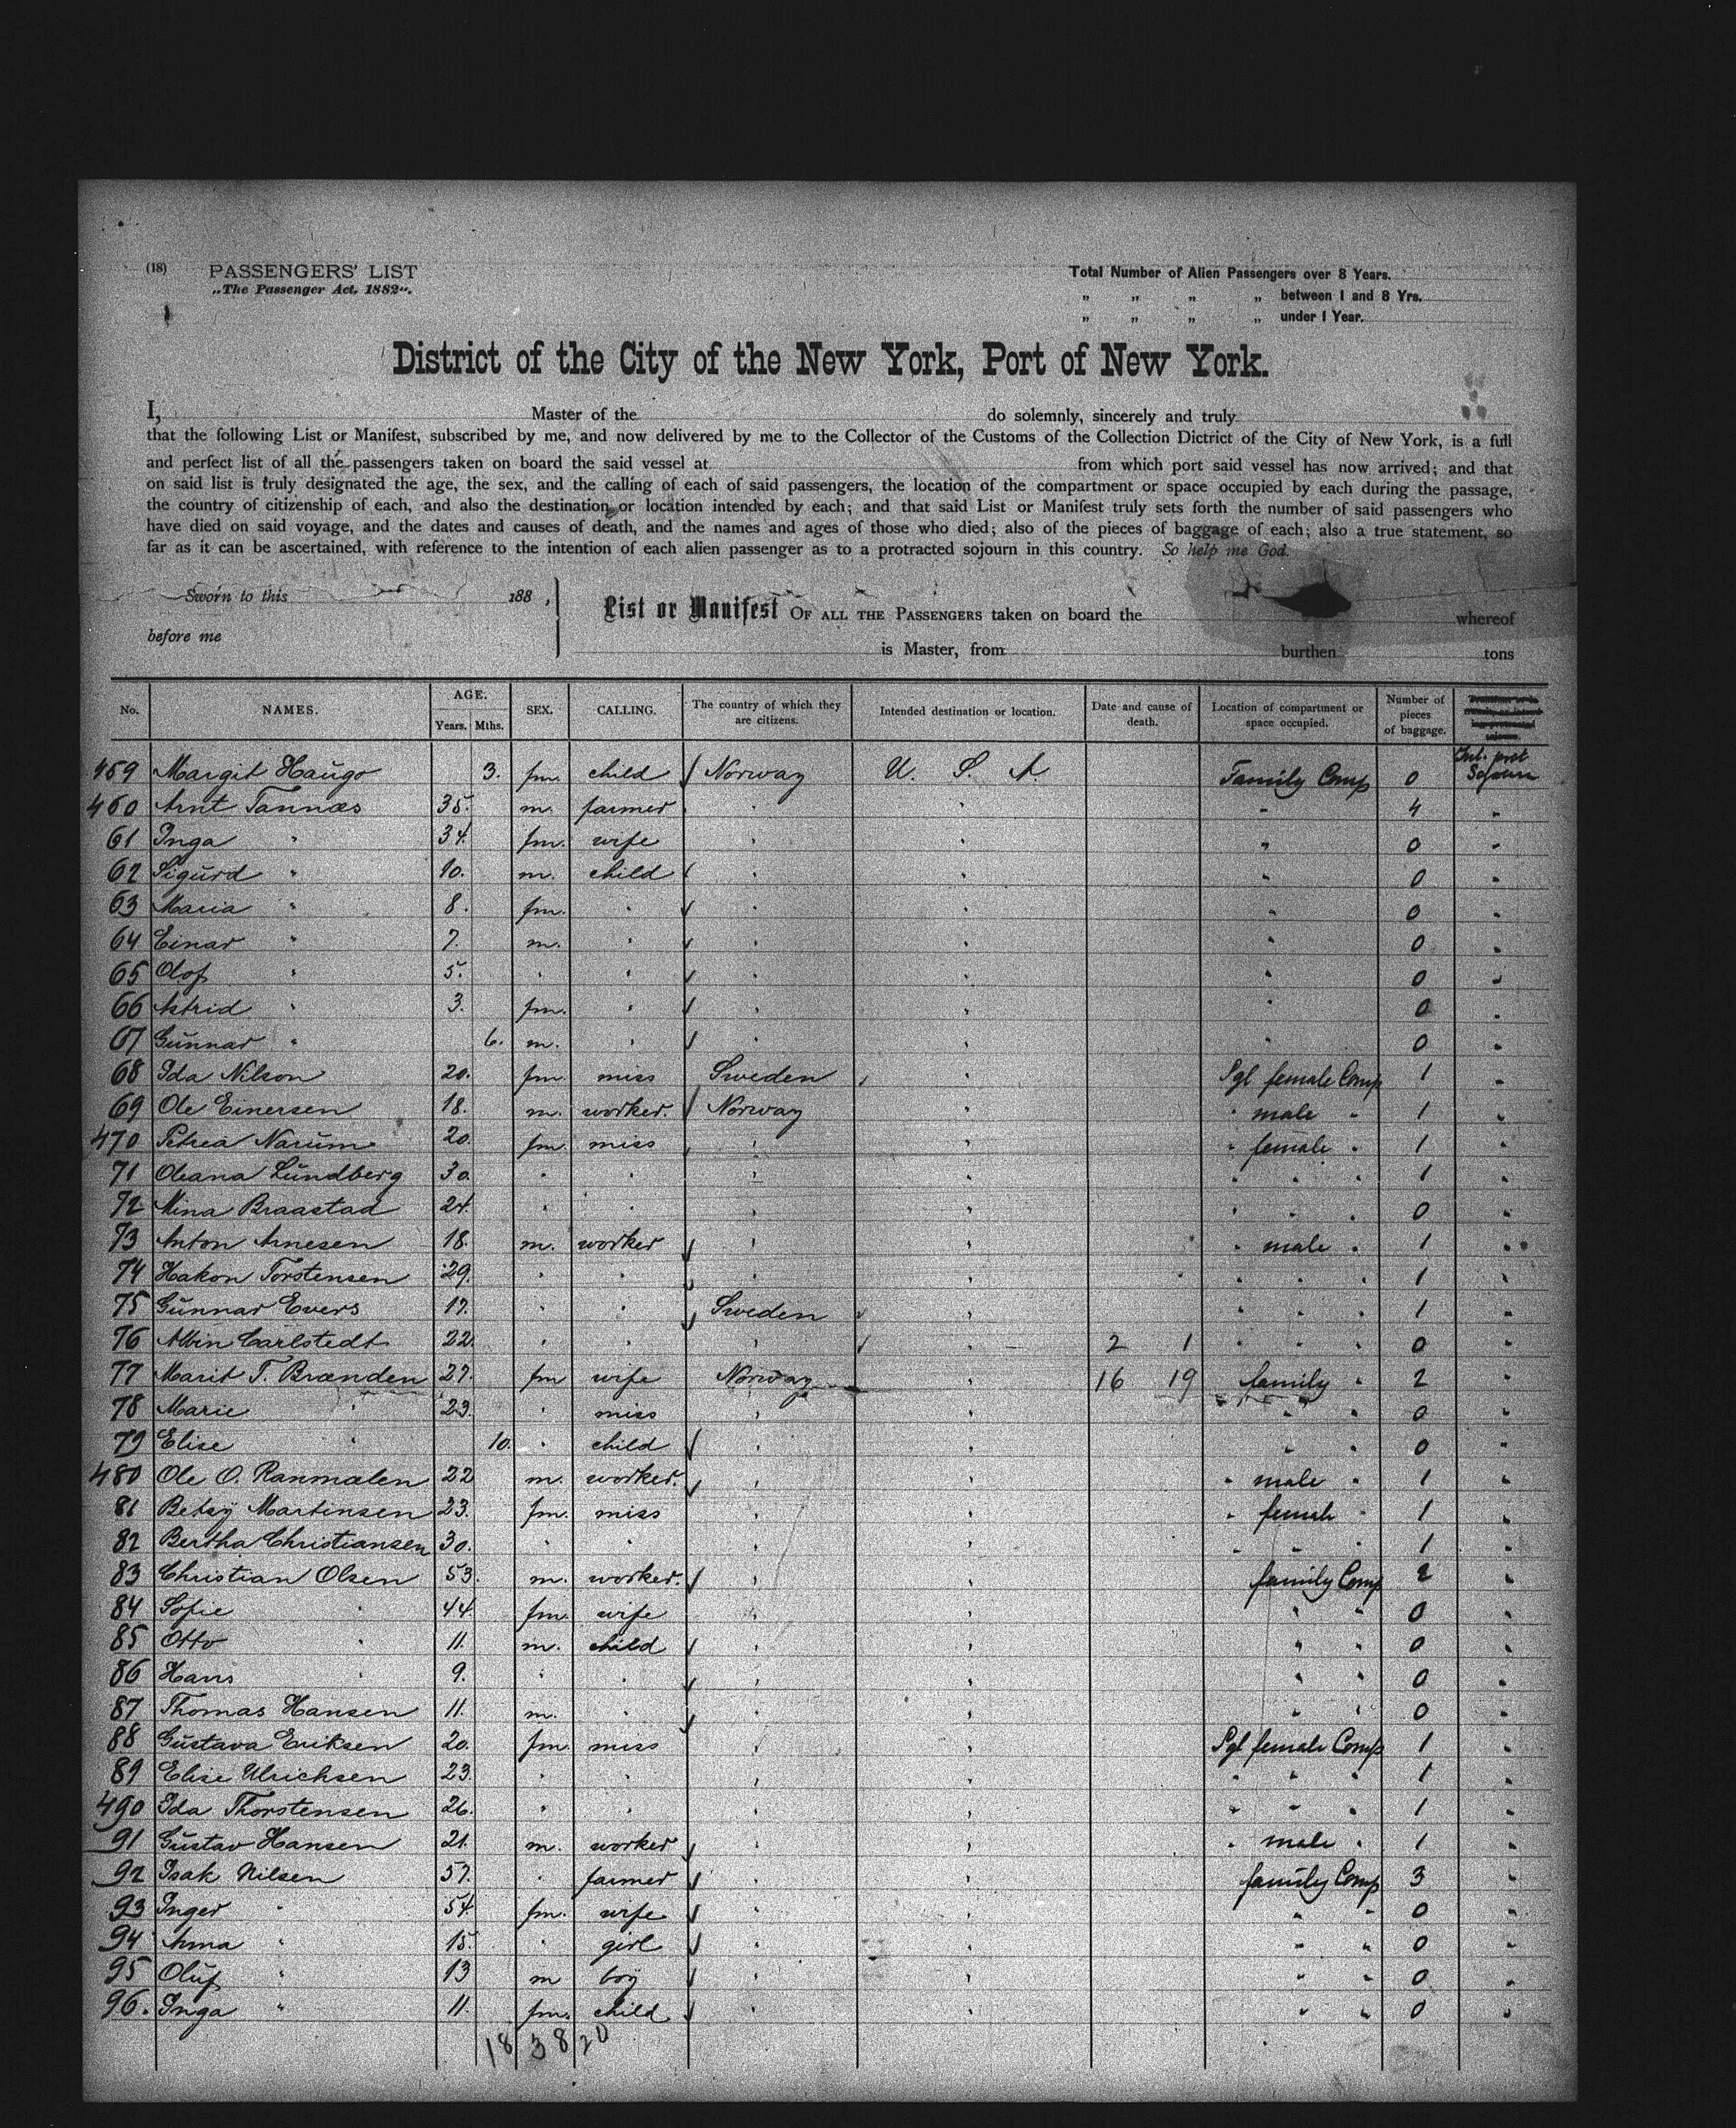 (18) PASSENGERS' LIST
„The Passenger Act, 1882".
Total Number of Alien Passengers over 8 Years.
„ „ „ „ between 1 and 8 Yrs.
„ „ „ „ under 1 Year.
District of the City of the New York, Port of New York.
I, Master of the do solemnly, sincerely and truly
that the following List or Manifest, subscribed by me, and now delivered by me to the Collector of the Customs of the Collection District of the City of New York, is a full
and perfect list of all the passengers taken on board the said vessel at from which port said vessel has now arrived; and that
on said list is truly designated the age, the sex, and the calling of each of said passengers, the location of the compartment or space occupied by each during the passage,
the country of citizenship of each, and also the destination or location intended by each; and that said List or Manifest truly sets forth the number of said passengers who
have died on said voyage, and the dates and causes of death, and the names and ages of those who died; also of the pieces of baggage of each; also a true statement, so
far as it can be ascertained, with reference to the intention of each alien passenger as to a protracted sojourn in this country. So help me God.
Sworn to this 188 ,
before me
List or Manifest OF ALL THE PASSENGERS taken on board the whereof
is Master, from burthen tons
No. NAMES. AGE. Years. Mths. SEX. CALLING. The country of which they are citizens. Intended destination or location. Date and cause of death. Location of compartment or space occupied. Number of pieces of baggage.
459 Margit Haugo 3. fm. child Norway U. S. A Family Comp 0 Int. prot Sojourn
460 Arnt Tannæs 35. m. farmer " " " 4 "
61 Inga " 34. fm. wife " " " 0 "
62 Sigurd " 10. m. child " " " 0 "
63 Maria " 8. fm. " " " " 0 "
64 Einar " 7. m. " " " " 0 "
65 Olof " 5. " " " " " 0 "
66 Astrid " 3. fm. " " " " 0 "
67 Gunnar " 6. m. " " " " 0 "
68 Ida Nilson 20. fm. miss Sweden " Sgl female Comp 1 "
69 Ole Einersen 18. m. worker. Norway " " male " 1 "
470 Petrea Narum 20. fm. miss " " " female " 1 "
71 Oleana Lundberg 30. " " " " " " " 1 "
72 Mina Braastad 24. " " " " " " " 0 "
73 Anton Arnesen 18. m. worker " " " male " 1 "
74 Hakon Torstensen 29. " " " " " " " 1 "
75 Gunnar Evers 17. " " Sweden " " " " 1 "
76 Albin Carlstedt 22. " " " " 2 1 " " " 0 "
77 Marit T. Brænden 27. fm wife Norway " 16 19 family " 2 "
78 Marie " 23. " miss " " " " 0 "
79 Elise " 10. " child " " " " 0 "
480 Ole O. Ranmælen 22 m. worker. " " " male " 1 "
81 Betsy Martinsen 23. fm. miss " " " female " 1 "
82 Bertha Christiansen 30. " " " " " " " 1 "
83 Christian Olsen 53. m. worker. " " family Comp 2 "
84 Sofie " 44 fm. wife " " " " 0 "
85 Otto " 11. m. child " " " " 0 "
86 Hans " 9. " " " " " " 0 "
87 Thomas Hansen 11. m. " " " " " 0 "
88 Gustava Eriksen 20. fm. miss " " Sgl female Comp 1 "
89 Elise Ulrichsen 23. " " " " " " " 1 "
490 Ida Thorstensen 26. " " " " " " " 1 "
91 Gustav Hansen 21. m. worker " " " male " 1 "
92 Isak Nilsen 57. " farmer " " family Comp 3 "
93 Inger " 54 fm. wife " " " " 0 "
94 Anna " 15. " girl " " " " 0 "
95 Oluf " 13 m boy " " " " 0 "
96. Inga " 11. fm. child " " " " 0 "
18 38 20